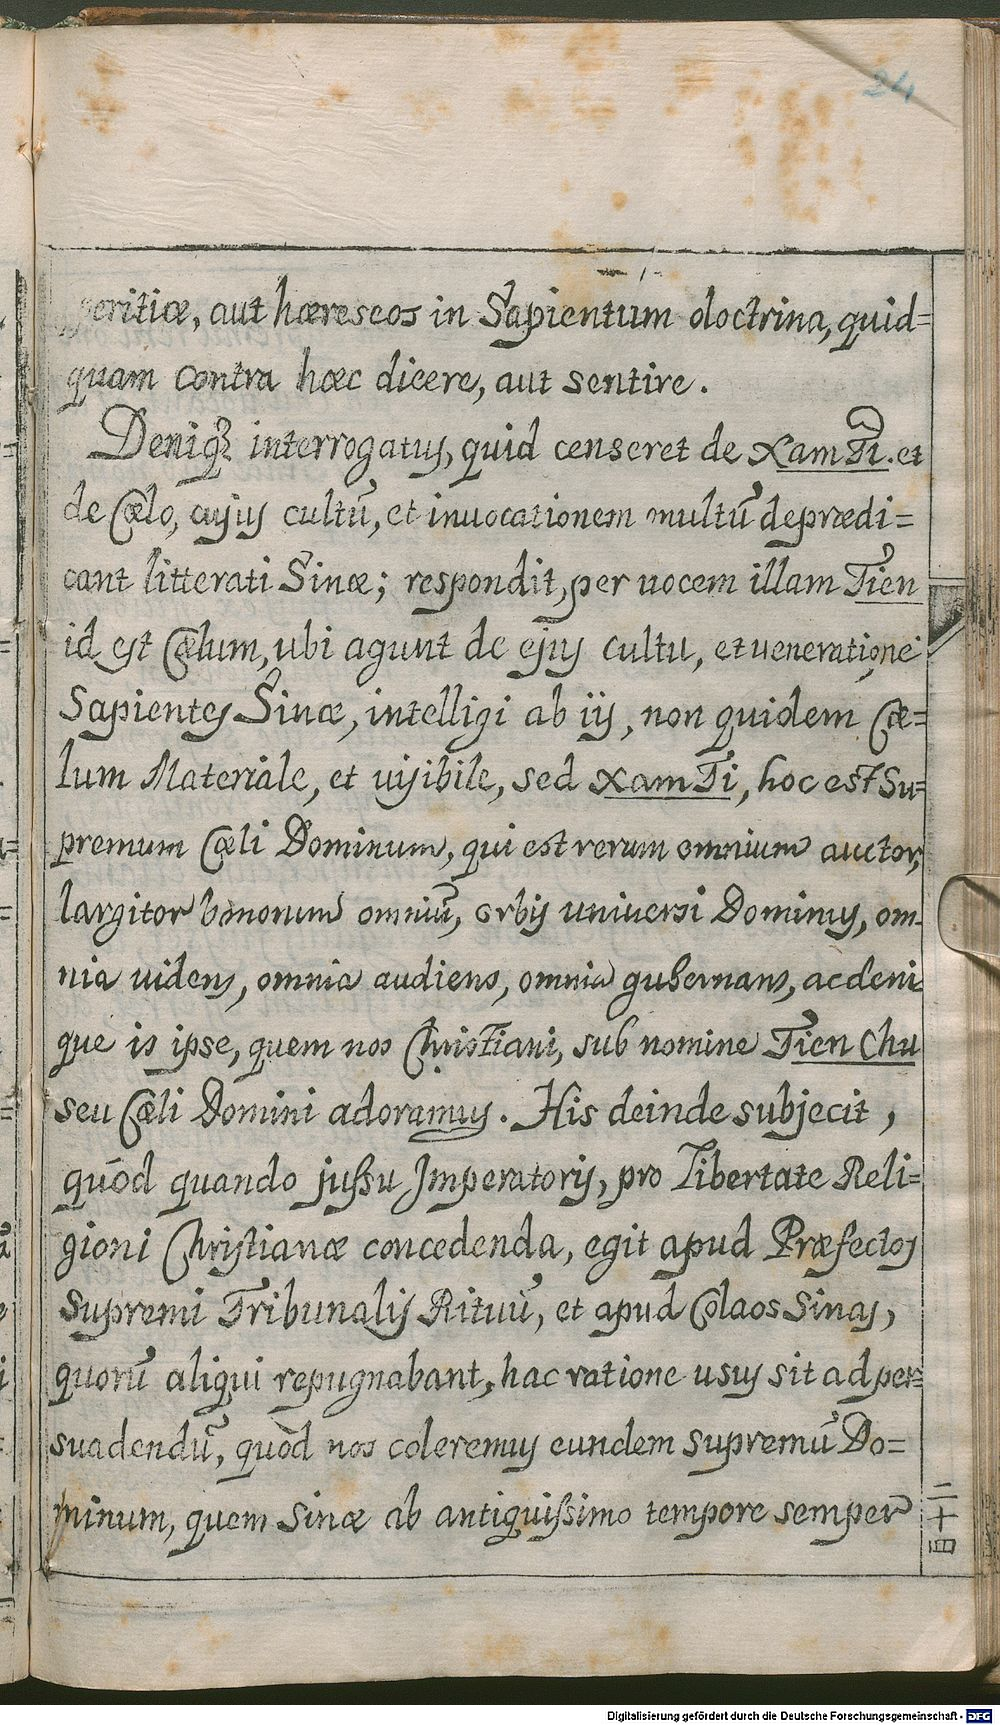 24
peritiæ, aut hæreseos in Sapientum doctrina, quid=
quam contra hæc dicere, aut sentire.
Deniq3 interrogatus, quid censeret de Xam Ti. et
de Cælo, cujus cultū, et invocationem multū deprædi=
cant litterati Sinæ; respondit, per vocem illam Tien
id est Cælum, ubi agunt de ejus cultu, et veneratione
Sapientes Sinæ, intelligi ab iis, non quidem Cæ=
lum Materiale, et visibile, sed Xam Ti, hoc est Su=
premum Cæli Dominum, qui est rerum omnium auctor,
largitor bonorum omniū, orbis universi Dominus, om-
nia videns, omnia audiens, omnia gubernans, ac deni
que is ipse, quem nos Christiani, sub nomine Tien Chu
seu Cæli Domini adoramus. His deinde subjecit,
quòd quando jussu Imperatoris, pro Libertate Reli=
gioni Christianæ concedenda, egit apud Præfectos
Supremi Tribunalis Rituū, et apud Colaos Sinas,
quorū aliqui repugnabant, hac ratione usus sit ad per=
suadendū, quòd nos coleremus eundem supremū Do=
minum, quem Sinæ ab antiquissimo tempore semper
二十四
Digitalisierung gefördert durch die Deutsche Forschungsgemeinschaft - DFG